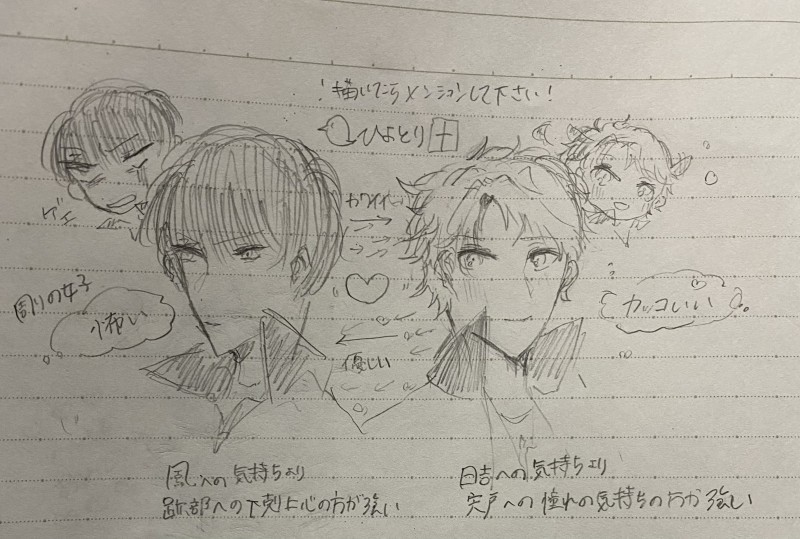 ！描いたらメンションして下さい！
ひよとり
カワイイ
周りの女子
怖い
カッコいい
優しい
鳳への気持ちより
跡部への下剋上心の方が強い
日吉への気持ちより
宍戸への憧れの気持ちの方が強い